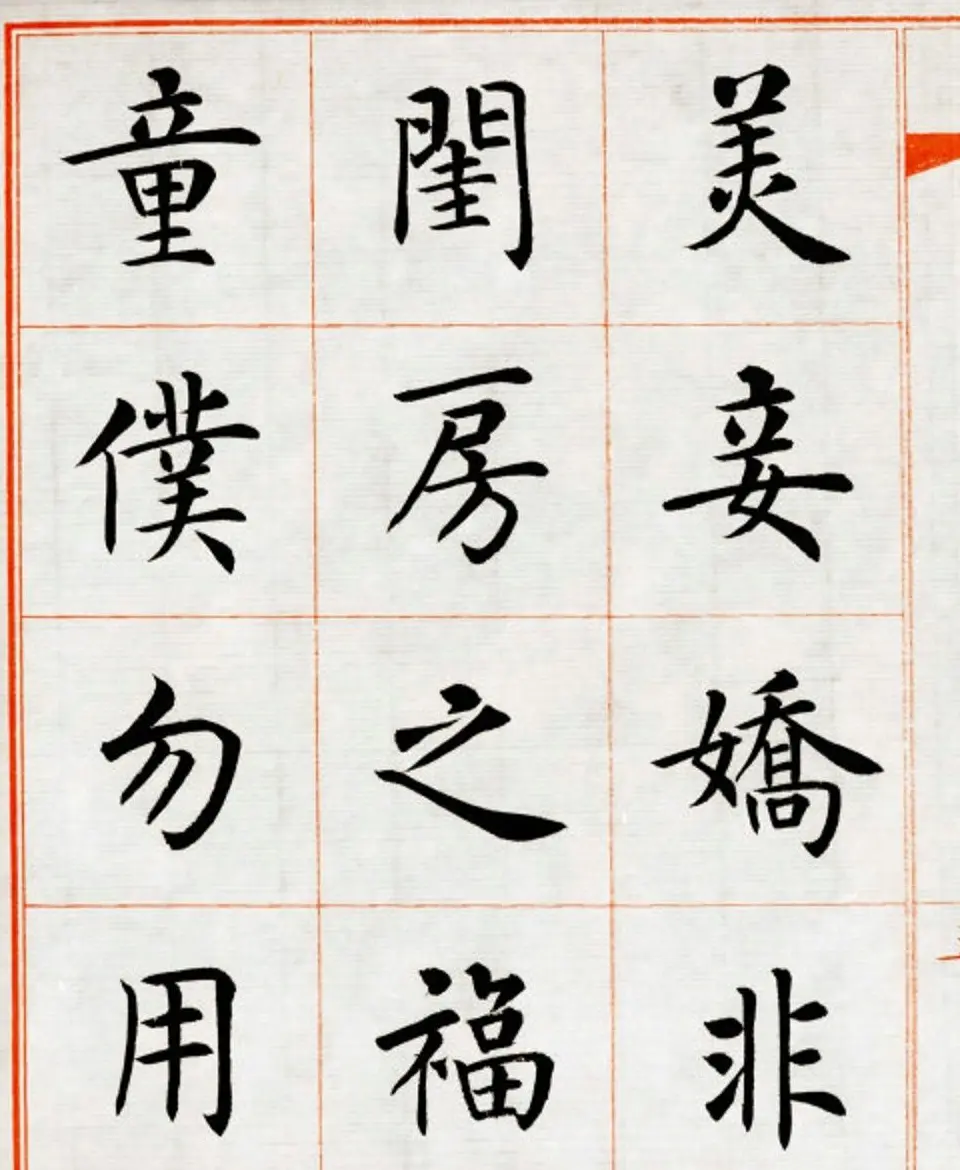 美妾嬌非
閨房之福
童僕勿用